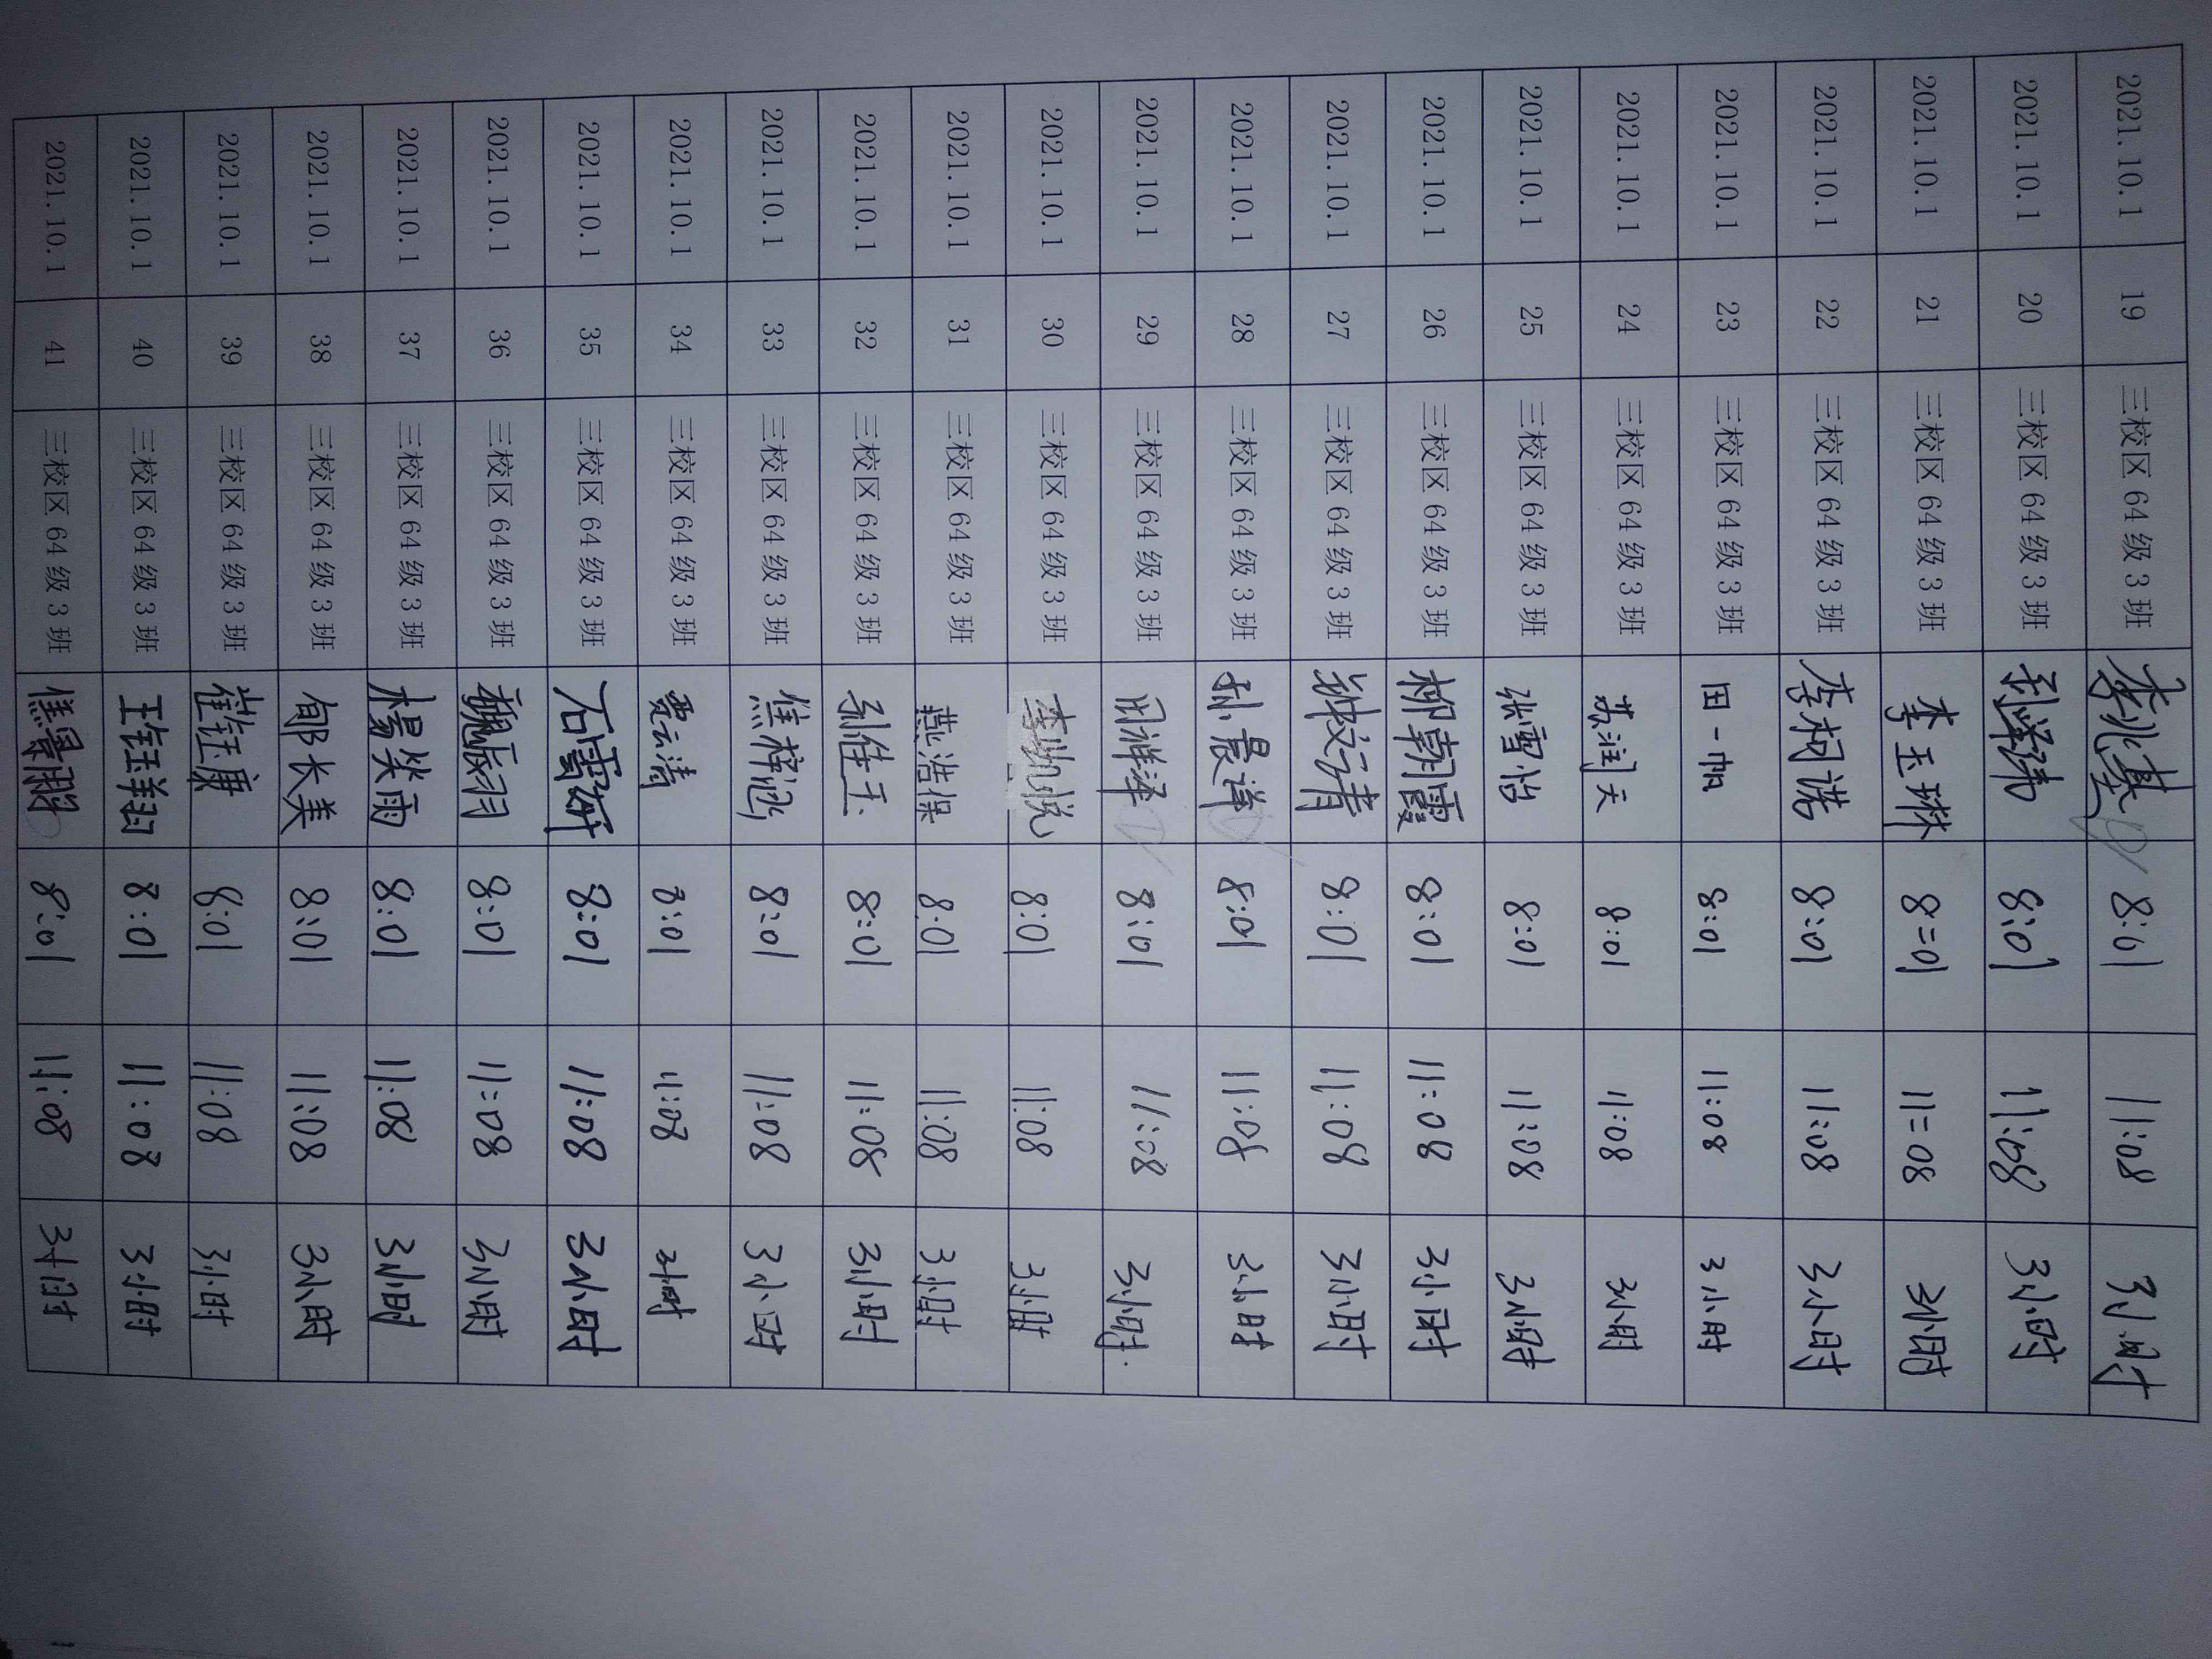 2021.10.1 19 三校区64级3班 李兆基 8:01 11:08 3小时
2021.10.1 20 三校区64级3班 8:01 11:08 3小时
2021.10.1 21 三校区64级3班 李玉琳 8=01 11=08 3小时
2021.10.1 22 三校区64级3班 李柯诺 8:01 11:08 3小时
2021.10.1 23 三校区64级3班 田一帆 8:01 11:08 3小时
2021.10.1 24 三校区64级3班 苏润天 8:01 11:08 3小时
2021.10.1 25 三校区64级3班 张雪怡 8:01 11:08 3小时
2021.10.1 26 三校区64级3班 柳朝霞 8:01 11:08 3小时
2021.10.1 27 三校区64级3班 8:01 11:08 3小时
2021.10.1 28 三校区64级3班 孙晨洋 8:01 11:08 3小时
2021.10.1 29 三校区64级3班 8:01 11:08 3小时
2021.10.1 30 三校区64级3班 李凯悦 8:01 11:08 3小时
2021.10.1 31 三校区64级3班 燕浩保 8:01 11:08 3小时
2021.10.1 32 三校区64级3班 8:01 11:08 3小时
2021.10.1 33 三校区64级3班 8:01 11:08 3小时
2021.10.1 34 三校区64级3班 贾云涛 8:01 11:08 3小时
2021.10.1 35 三校区64级3班 石雪妍 8:01 11:08 3小时
2021.10.1 36 三校区64级3班 魏辰羽 8:01 11:08 3小时
2021.10.1 37 三校区64级3班 杨笑雨 8:01 11:08 3小时
2021.10.1 38 三校区64级3班 郇长美 8:01 11:08 3小时
2021.10.1 39 三校区64级3班 崔钰康 8:01 11:08 3小时
2021.10.1 40 三校区64级3班 王钰翔 8:01 11:08 3小时
2021.10.1 41 三校区64级3班 8:01 11:08 3小时